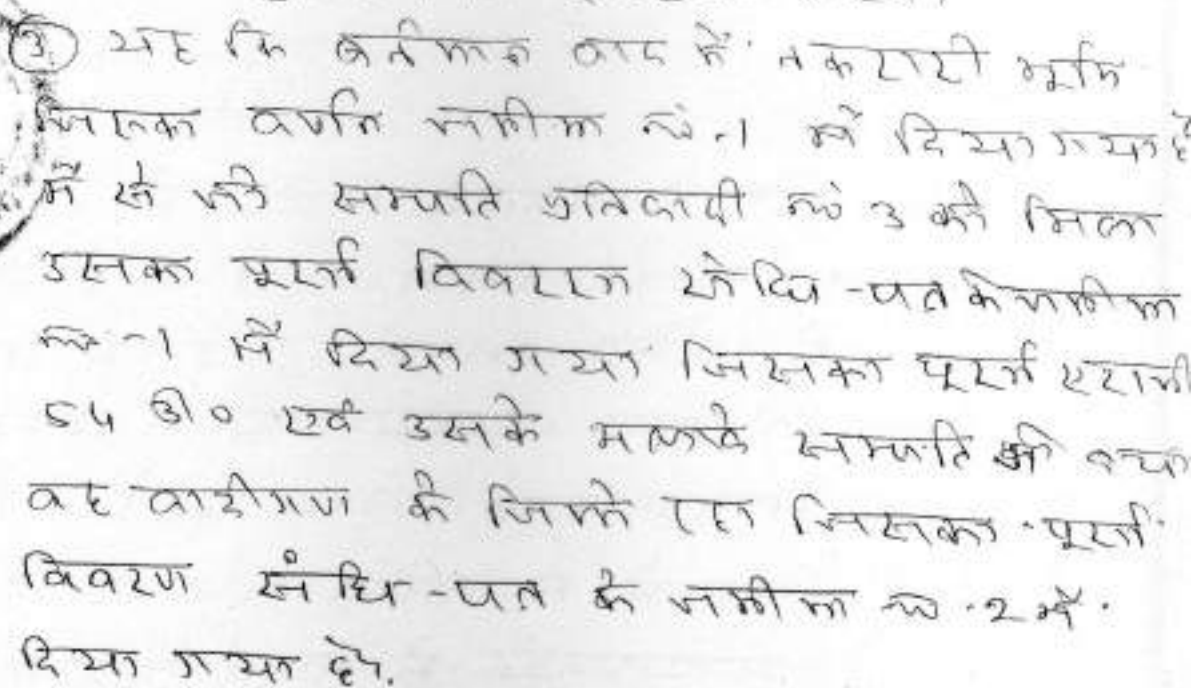 ③ यह कि वर्तमान वाद में तकरारी भूमि
जिसका वर्णन जमीमा नं०-1 में दिया गया है
में से जो सम्पति प्रतिवादी नं० 3 को मिला
उसका पूर्ण विवरण संधि-पत्र के जमीमा
नं०-1 में दिया गया जिसका पूर्ण एराजी
54 डी० एवं उसके अलावे सम्पति जो बचा
वह वादीगण के जिम्मे रहा जिसका पूर्ण
विवरण संधि-पत्र के जमीमा नं०-2 में
दिया गया है.